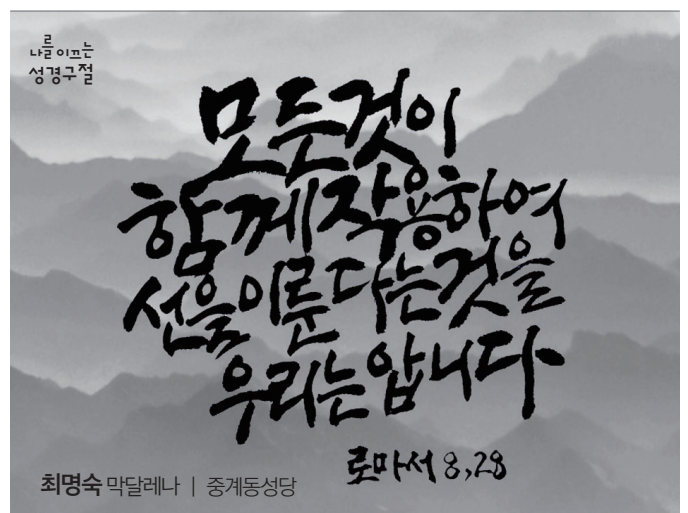 나를 이끄는
성경구절
모든것이
함께 작용하여
선을 이룬다는 것을
우리는 압니다
로마서 8,28
최명숙 막달레나 | 중계동성당